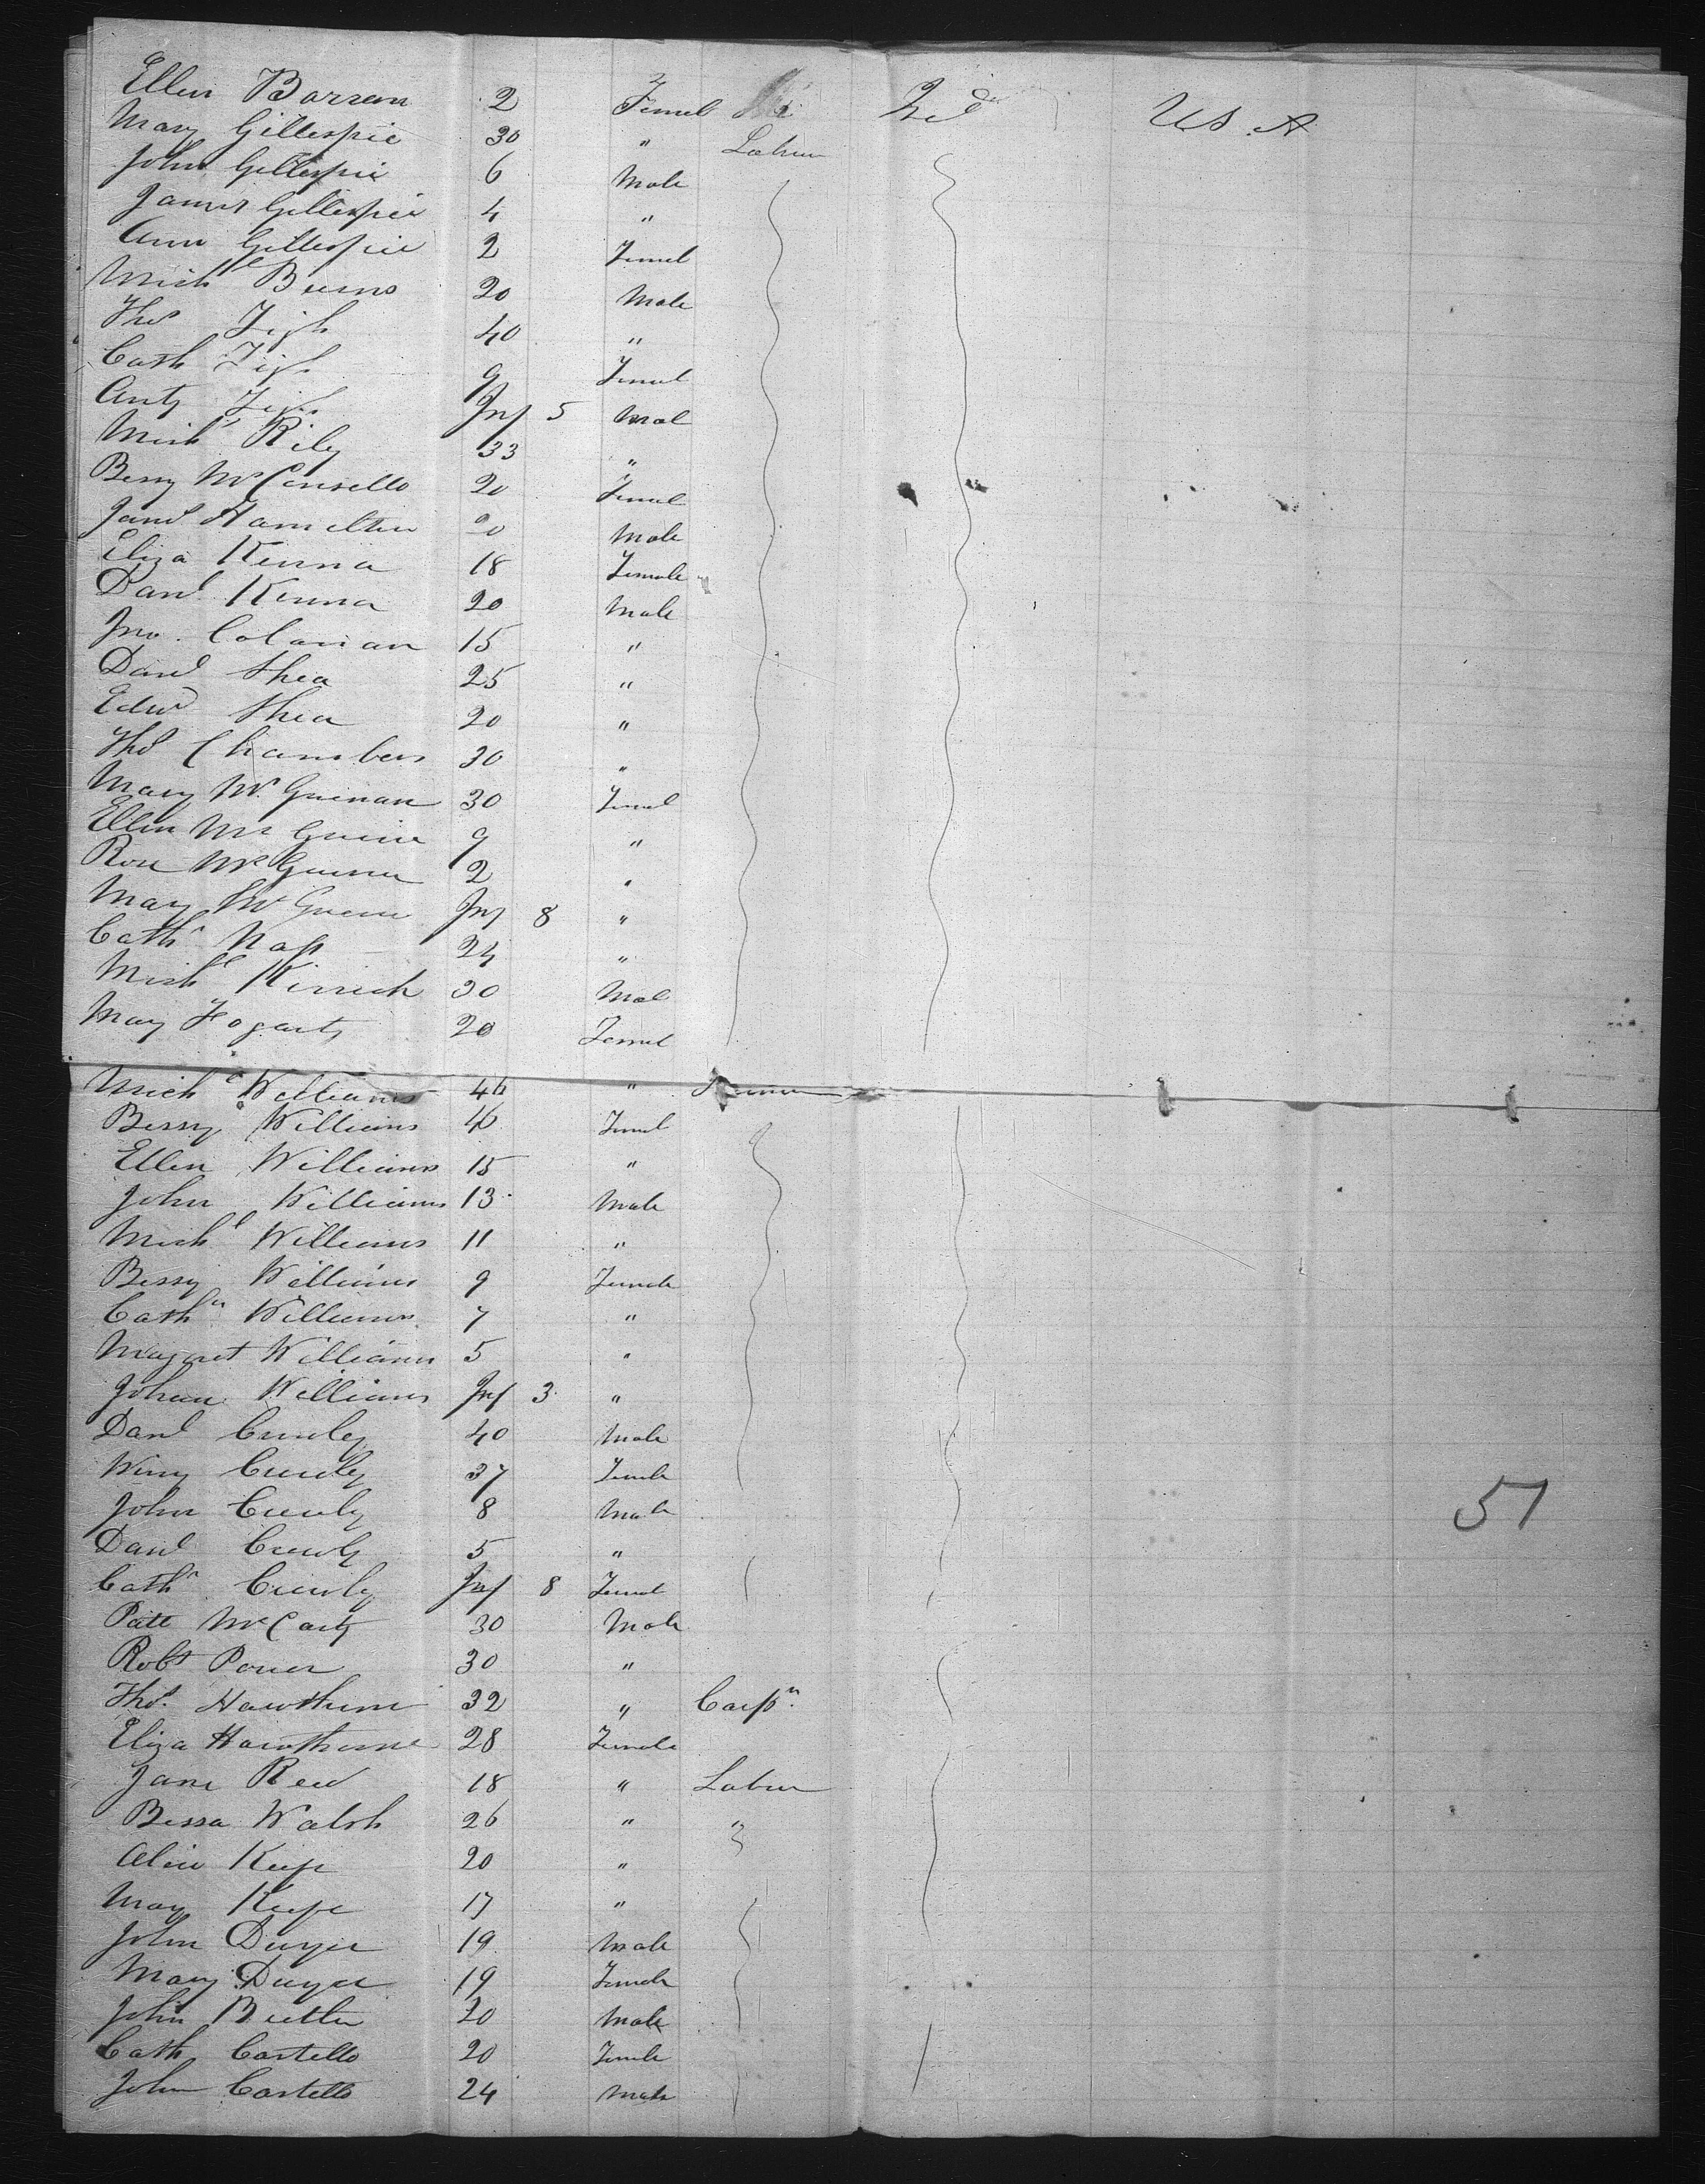 Ellen Barran 2 Femal Ired U.S.A
Mary Gillespie 30 " Labur
John Gillespie 6 Male
James Gillespie 4 "
Ann Gillespie 2 Femal
Mich^l Burns 20 Male
Tho^s Tigh 40 "
Cath Tigh 9 Femal
Anty Tigh Inf 5 Mal
Mich^l Rily 33 "
Bessy 20 Femal
Jam^s Hamelton 20 Male
Eliza Kenna 18 Female
Dan^l Kenna 20 Male
Jno. Colaman 15 "
Dan^l Shea 25 "
Edw^d Shea 20 "
Tho^s Chambers 30 "
Mary 30 Femal
Ellen Mc Guire 9 "
Rose 2 "
Mary Inf 8 "
Cath^n Nass 24 "
Mich^l 30 Mal
Mary Fogarty 20 Femal
Mich^l Williams 46 "
Bessy Williams 46 Femal
Ellen Williams 15 "
John Williams 13 Male
Mich^l Williams 11 "
Bessy Williams 9 Female
Cath^n Williams 7 "
Magaret Williams 5 "
Johan Williams Inf 3 "
Dan^l Crowley 40 Male
Winy Crowly 37 Female
John Crowly 8 Male
51
Dan^l Crowly 5 "
Cath^n Crowly Inf 8 Femal
Patt McCarty 30 Male
Rob^t Power 30 "
Tho^s. Hawthorne 32 " Carp^n.
Eliza Hawthorne 28 Female
Jane 18 " Labur
Bessa Walsh 26 " "
Alice Keefe 20 "
Mary Keefe 17 "
John Dwyer 19 Male
Mary Dwyer 19 Female
John Butler 20 Male
Cath Costello 20 Female
John Costello 24 Male